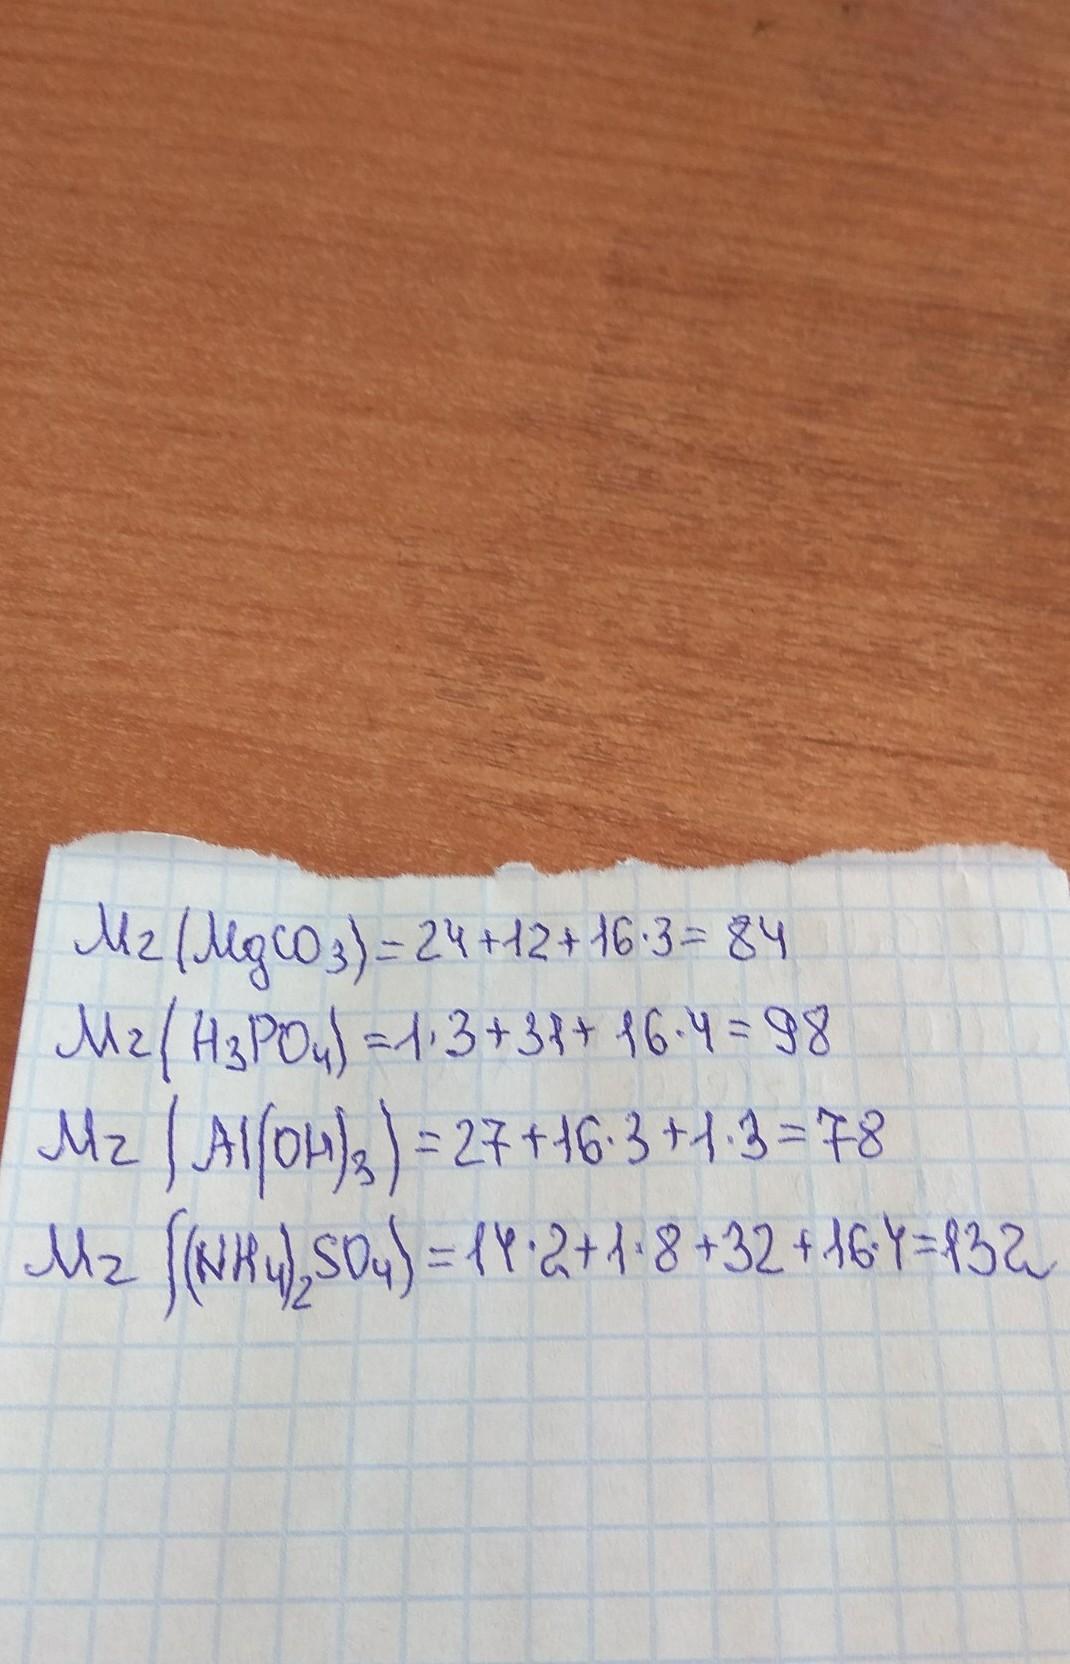 Mr(MgCO3)=24+12+16·3=84
Mr(H3PO4)=1·3+31+16·4=98
Mr(Al(OH)3)=27+16·3+1·3=78
Mr((NH4)2SO4)=14·2+1·8+32+16·4=132